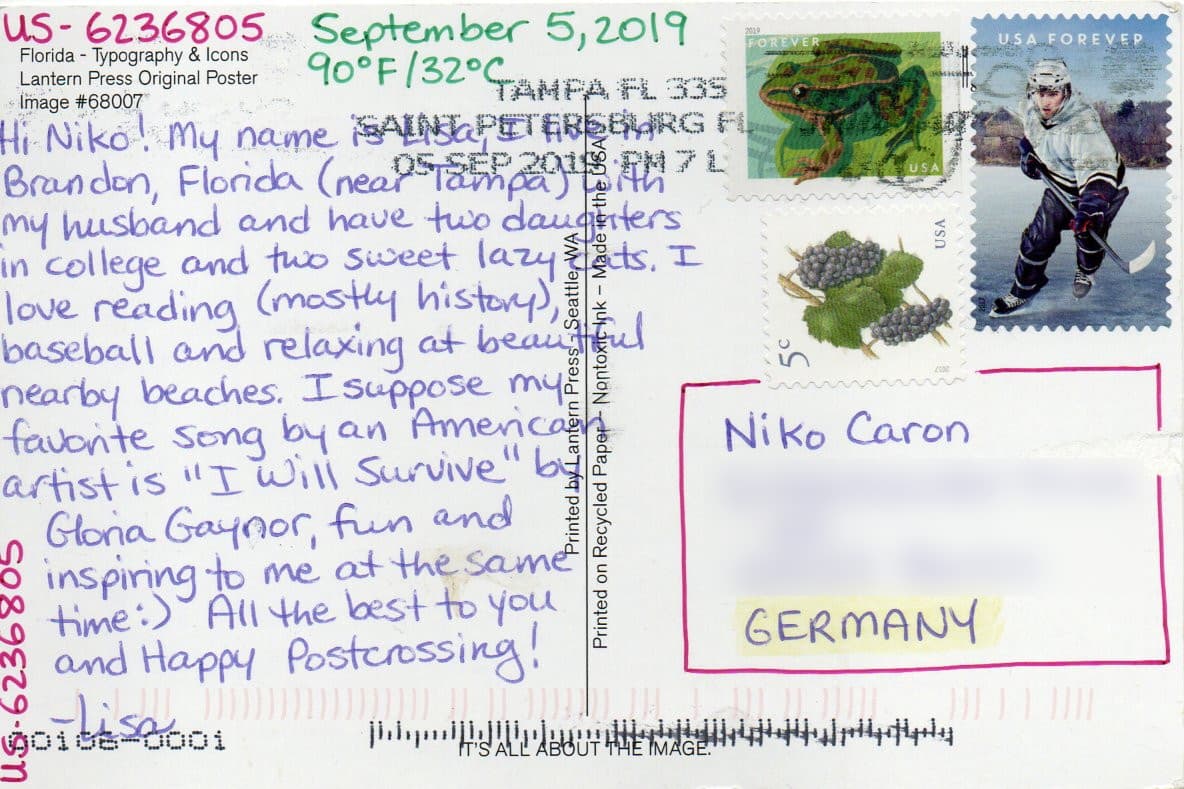 US-6236805
Florida - Typography & Icons
Lantern Press Original Poster
Image #68007
September 5, 2019
90°F/32°C
TAMPA FL 335
SAINT PETERSBURG FL
05 SEP 2019 PM 7 L
Hi Niko! My name is Lisa, I live in
Brandon, Florida (near Tampa) with
my husband and have two daughters
in college and two sweet lazy cats. I
love reading (mostly history),
baseball and relaxing at beautiful
nearby beaches. I suppose my
favorite song by an American
artist is "I Will Survive" by
Gloria Gaynor, fun and
inspiring to me at the same
time:) All the best to you
and Happy Postcrossing!
-Lisa
US-6236805
Printed by Lantern Press - Seattle, WA
Printed on Recycled Paper - Nontoxic Ink - Made in the USA
2019
FOREVER
USA
USA FOREVER
2017
USA
5c
2017
Niko Caron
GERMANY
00108-0001
IT'S ALL ABOUT THE IMAGE.